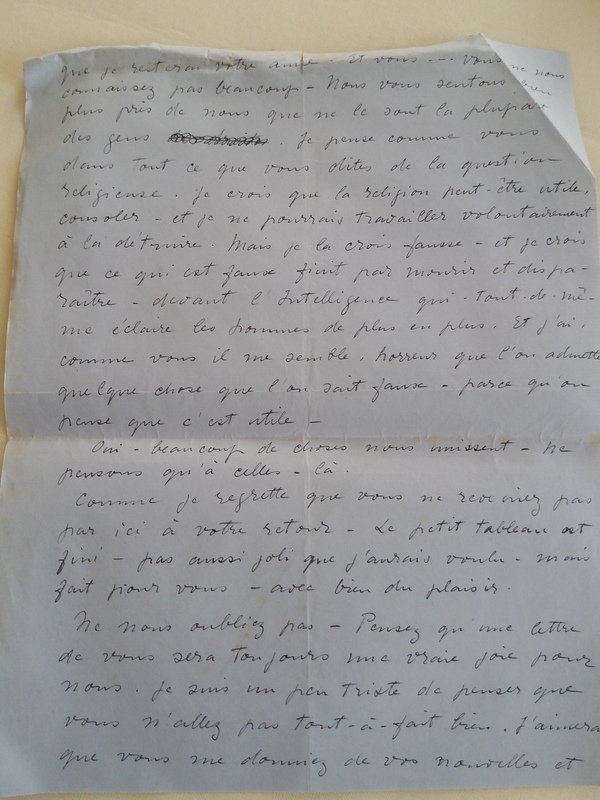 que je resterai votre amie. Et vous --- vous ne nous
connaissez pas beaucoup - Nous vous sentons bien
plus près de nous que ne le sont la plupart
des gens . Je pense comme vous
dans tout ce que vous dites de la question
religieuse. Je crois que la religion peut-être utile,
consoler - et je ne pourrais travailler volontairement
à la détruire. Mais je la crois fausse - et je crois
que ce qui est faux finit par mourir et dispa-
raître - devant l'Intelligence qui-tout-de-mê-
me éclaire les hommes de plus en plus. Et j'ai,
comme vous il me semble, horreur que l'on admette
quelque chose que l'on sait faux - parce qu'on
pense que c'est utile -
Oui - beaucoup de choses nous unissent - ne
pensons qu'à celles-là.
Comme je regrette que vous ne reveniez pas
par ici à votre retour - Le petit tableau est
fini - pas aussi joli que j'aurais voulu - mais
fait pour vous - avec bien du plaisir.
Ne nous oubliez pas - Pensez qu'une lettre
de vous sera toujours une vraie joie pour
nous. Je suis un peu triste de penser que
vous n'allez pas tout-à-fait bien. J'aimerai
que vous me donniez de vos nouvelles et